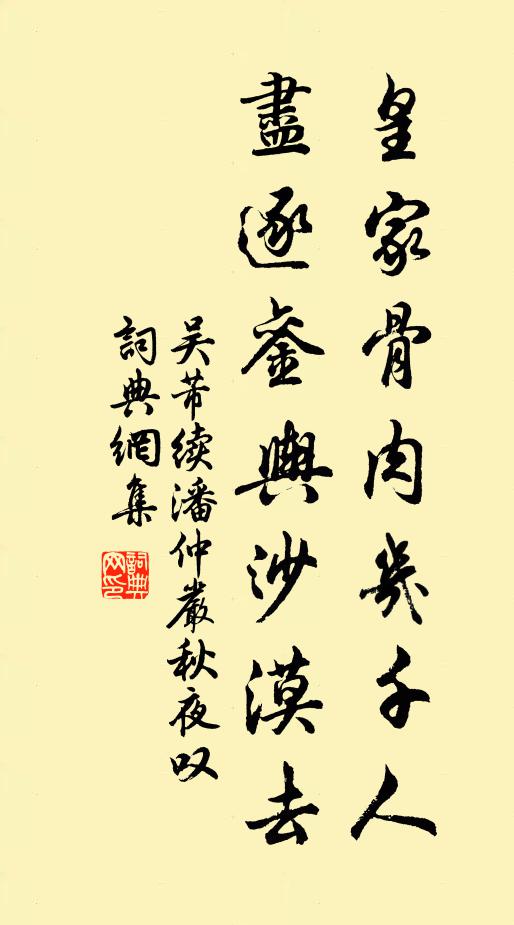 皇家骨肉幾千人
盡逐銮輿沙漠去
吴芾续潘仲嚴秋夜叹
詞典網集
詞典
网印